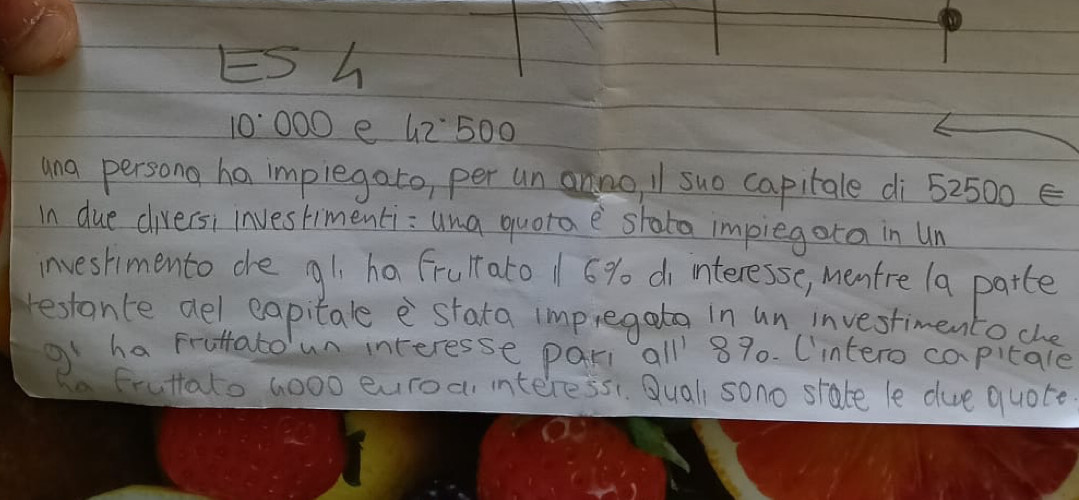 ES 4
10·000 e 42·500
una persona ha impiegato, per un anno, il suo capitale di 52500 €
in due diversi investimenti: una quota è stata impiegata in un
investimento che gli ha fruttato il 6% di interesse, mentre la parte
restante del capitale è stata impiegata in un investimento che
gli ha fruttato un interesse pari all' 8%. L'intero capitale
ha fruttato 4000 euro di interessi. Quali sono state le due quote.